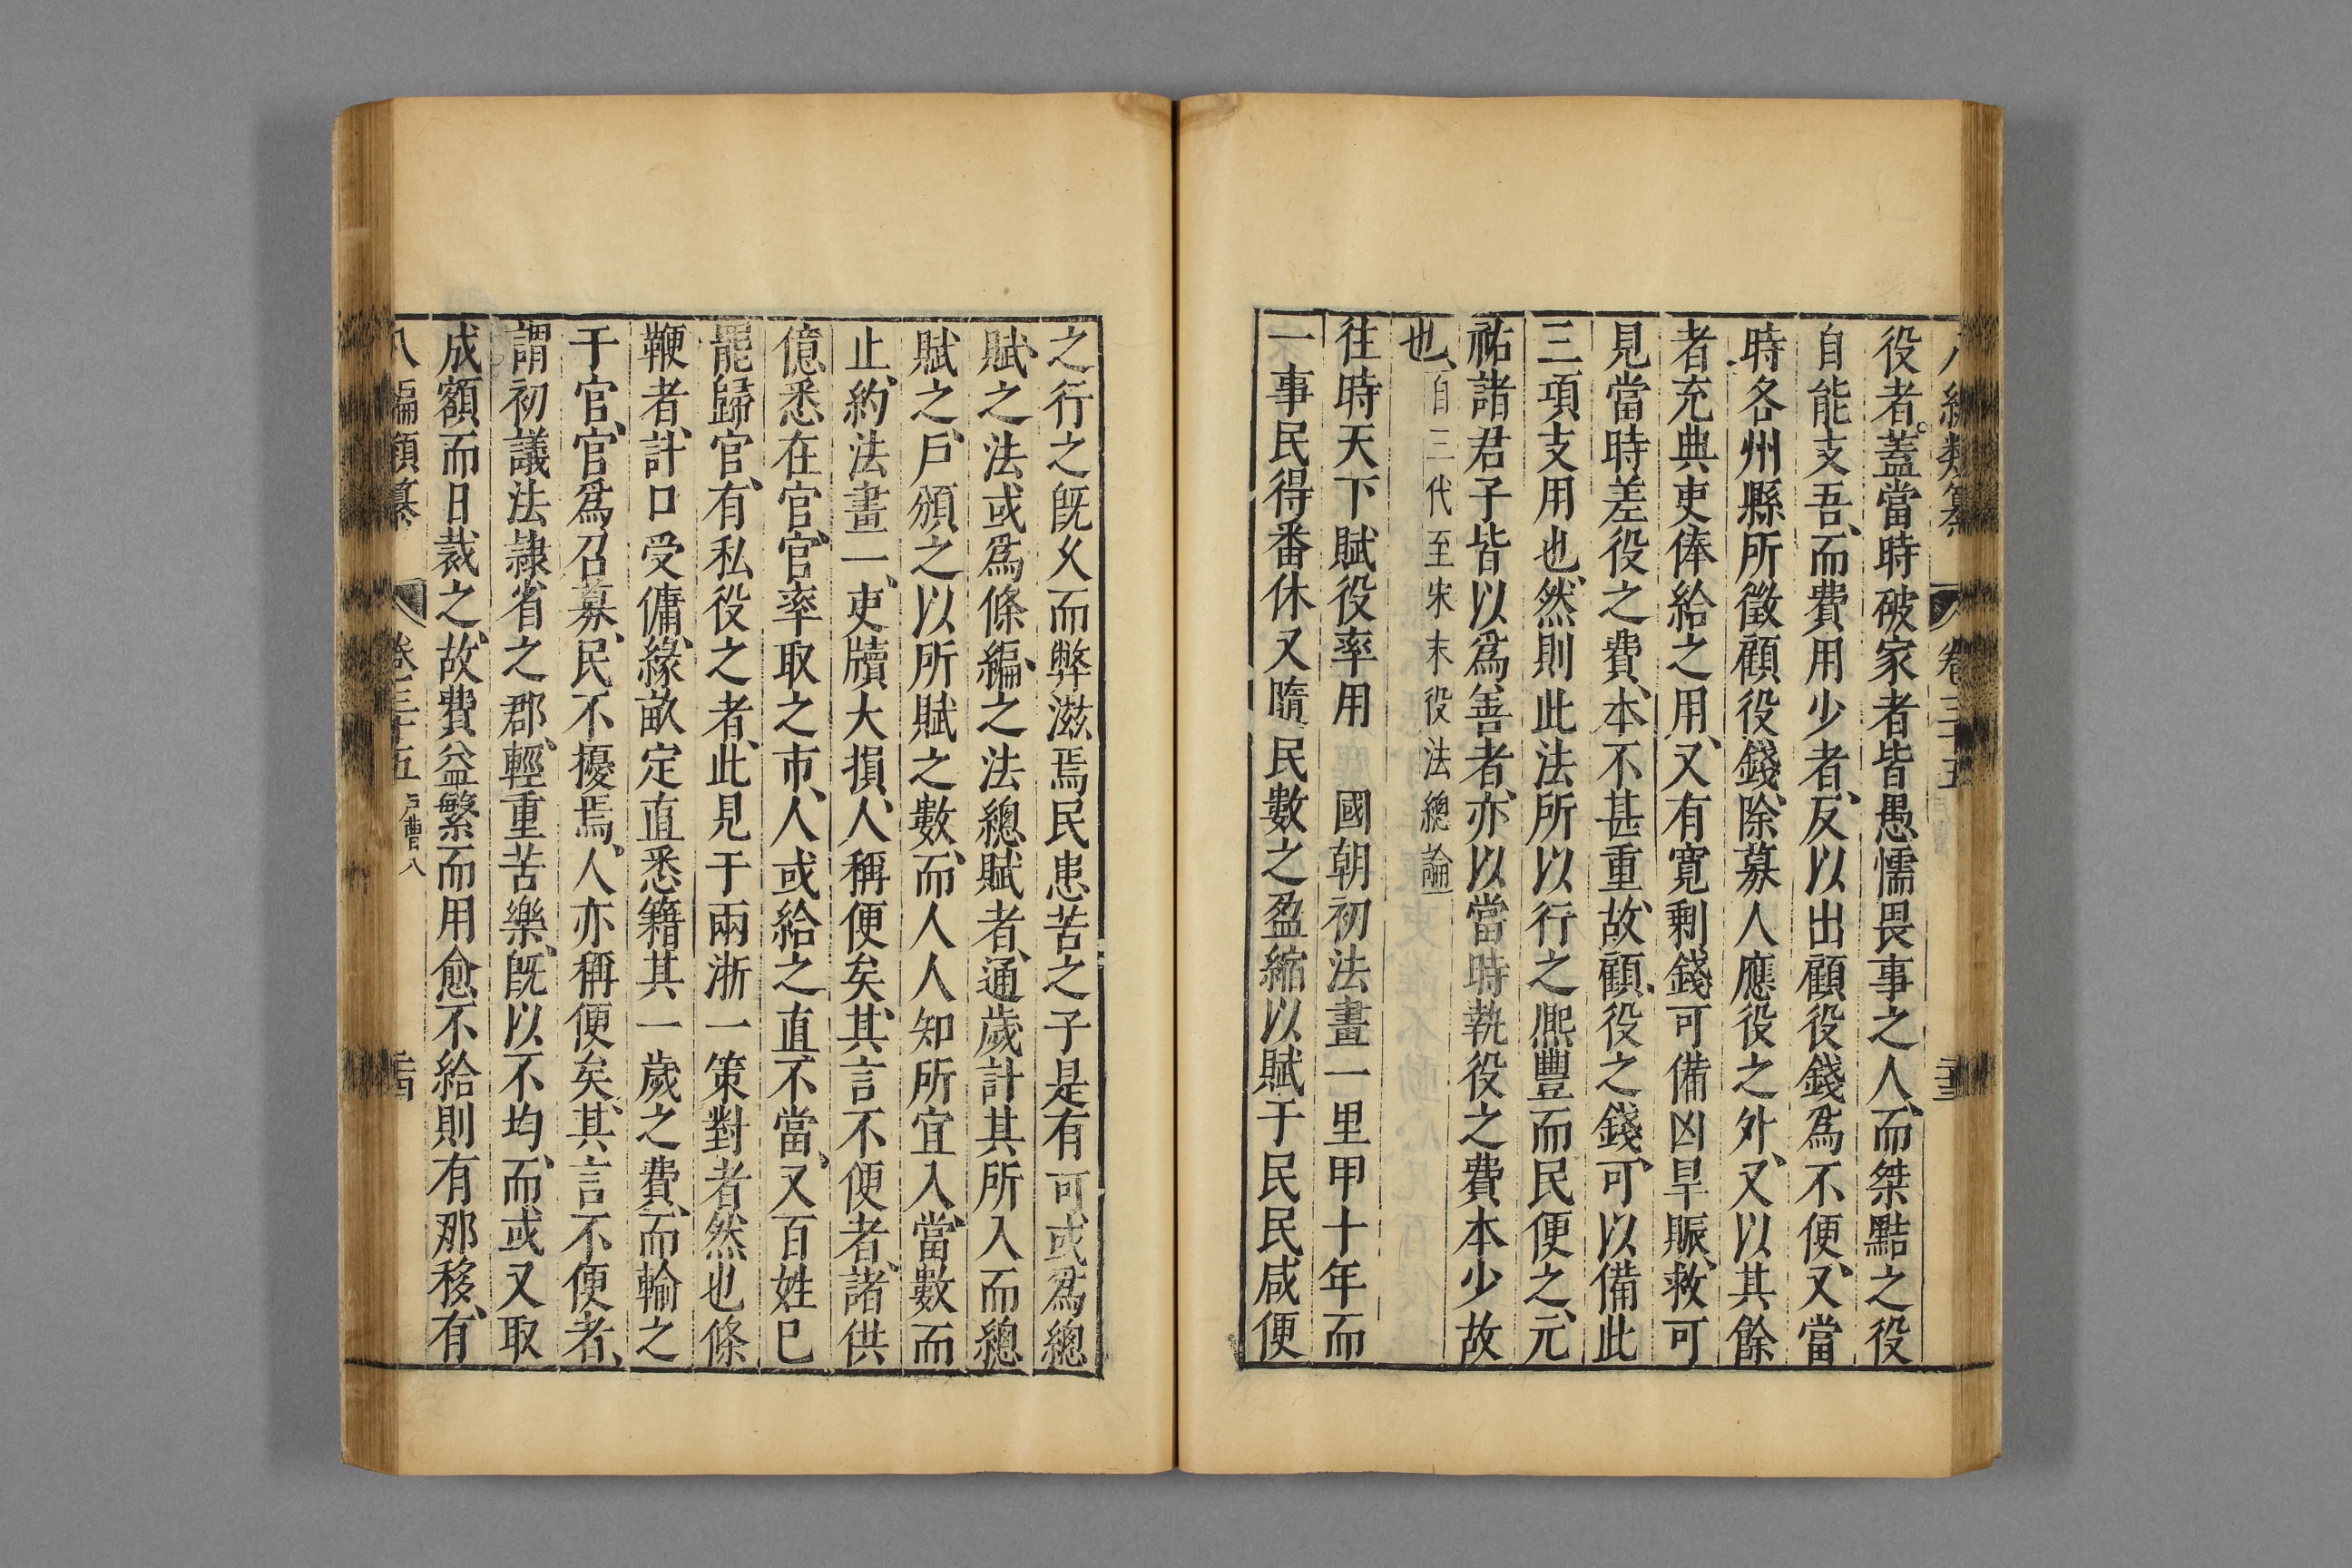 八編類纂 卷三十五 二十三
役者。蓋當時破家者皆愚懦畏事之人、而桀黠之役
自能支吾、而費用少者、反以出顧役錢爲不便、又當
時各州縣所徵顧役錢、除募人應役之外、又以其餘
者充典吏俸給之用、又有寛剩錢可備凶旱賑救可
見當時差役之費、本不甚重、故顧役之錢、可以備此
三項支用也、然則此法所以行之熈豐而民便之、元
祐諸君子皆以爲善者、亦以當時執役之費本少故
也、自三代至宋末役法總論
往時天下賦役率用 國朝初法畫一里甲十年而
一事民得番休又隋民數之盈縮以賦于民民咸便
之行之旣乆而弊滋焉民患苦之于是有可或爲總
賦之法或爲條編、之法總賦者、通歲計其所入而總
賦之、戶頒之以所賦之數、而人人知所宜入、當數而
止、約法畫一、吏牘大損、人稱便矣、其言不便者、諸供
億悉在官、官率取之市人、或給之直不當、又百姓已
罷歸官、有私役之者、此見于兩浙一策對者然也條
鞭者、計口受傭、緣畝定直悉籍其一歲之費、而輸之
于官、官爲召募、民不擾焉、人亦稱便矣、其言不便者、
謂初議法隷省之郡、輕重苦樂、旣以不均、而或又取
成額而日裁之、故費益繁而用愈不給則有那移、有
八編類纂 卷三十五 戶曹八 二十四